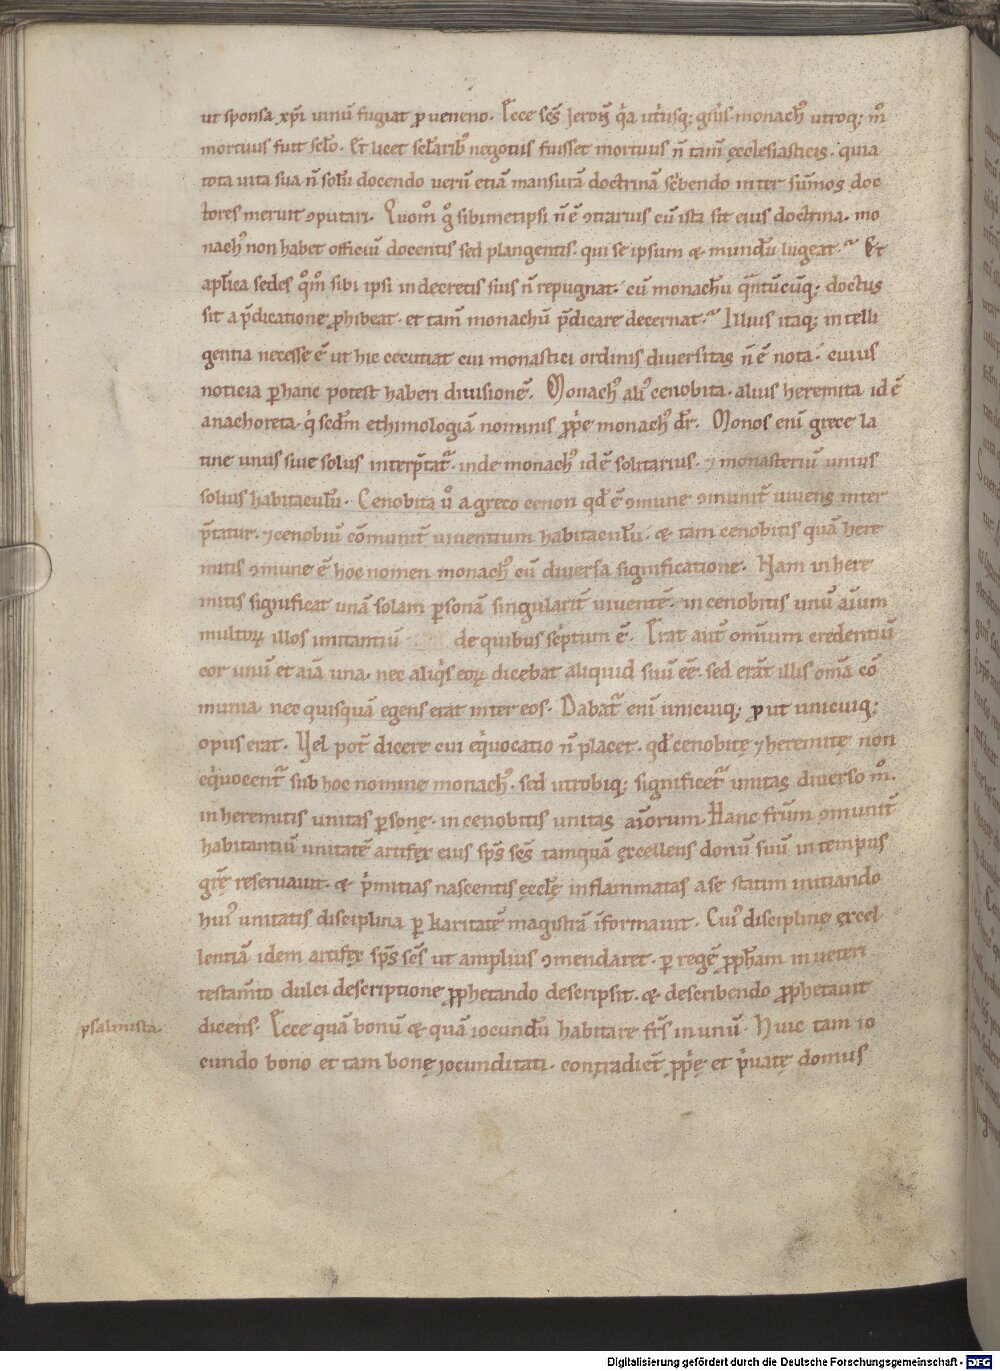 ut sponsa xp̄i uinū fugiat p ueneno. Ecce scs̄ Jeroñ qͥa utͥusq; gnͥis monachꝰ utroq; mͦ
mortuus fuit sclo. Et licet sclaribꝰ negotiis fuisset mortuus n̄ tam̄ ęcclesiasticis. quia
tota uita sua n̄ solū docendo uerū etiā mansurā doctrinā scͥbendo inter sūmos doc
tores meruit ꝯputari. Quom̊ gͦ sibimetipsi n̄ ē ꝯtrarius cū ista sit eius doctrina. mo
nachꝰ non habet officiū docentis sed plangentis. qui se ipsum & mundū lugeat. Et
aplica sedes qm̊ sibi ipsi in decretis suis n̄ repugnat. cū monachū qntūcūq; doctus
sit a p̄dicatione ꝓhibeat. et tam̄ monachū p̄dicare decernat. Illius itaq; intelli
gentia necesse ē ut hic cecutiat cui monastici ordinis diuersitas n̄ ē nota. cuius
noticia ꝑ hanc potest haberi diuisionē. Monachꝰ aliꝰ cenobita. alius heremita id ē
anachoreta. qͥ sedm̄ ethimologiā nominis ꝓpe monachꝰ dr̄. Monos eni grece la
tine unus siue solus interp̄tat᷑. inde monachꝰ id ē solitarius. ⁊ monasteriū unius
solius habitaculū. Cenobita uͦ a greco cenon qd ē ꝯmune ꝯmunit᷑ uiuens inter
p̄tatur. ⁊ cenobiū cōmunit᷑ uiuentium habitaculū. & tam cenobitis quā here
mitis ꝯmune ē hoc nomen monachꝰ cū diuersa significatione. Nam in here
mitis significat unā solam ꝑsonā singularit᷑ uiuentē. in cenobitis unū aīum
multoꝝ illos imitantiū de quibus scͥptum ē. Erat aut̄ omīum credentiū
cor unū et aīa una. nec aliqͥs eoꝝ dicebat aliquid suū eē. sed erāt illis om̄a cō
munia. nec quisquā egens erat inter eos. Dabat᷑ eni unicuiq; prout unicuiq;
opus erat. Vel pot᷑ dicere cui eqͥuocatio n̄ placet. qd cenobitę ⁊ heremitę non
eqͥuocent᷑ sub hoc nomine monachꝰ. sed utrobiq; significet᷑ unitas diuerso mͦ.
in heremitis unitas ꝑsonę. in cenobitis unitas aīorum. Hanc frūm ꝯmunit᷑
habitantiū unitatē artifex eius sps̄ scs̄ tamquā excellens donū suū in tempus
grę reseruauit. & pͥmitias nascentis ęcclę inflammatas a se statim initiando
huiꝰ unitatis disciplina ꝑ karitatē magistrā īformauit. Cuiꝰ disciplinę excel
lentiā idem artifex sps̄ scs̄ ut amplius ꝯmendaret. ꝑ regē ꝓpham in ueteri
testam̄to dulci descriptione ꝓphetando descripsit. & describendo ꝓphetauit
psalmista. dicens. Ecce quā bonū & quā iocundū habitare frs̄ in unū. Huic tam io
cundo bono et tam bonę iocunditati. contradicet᷑ ꝓpͥę et pͥuatę domus
Digitalisierung gefördert durch die Deutsche Forschungsgemeinschaft - DFG